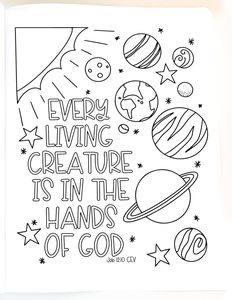 EVERY
LIVING
CREATURE
IS IN THE
HANDS
OF GOD
Job 12:10 CEV